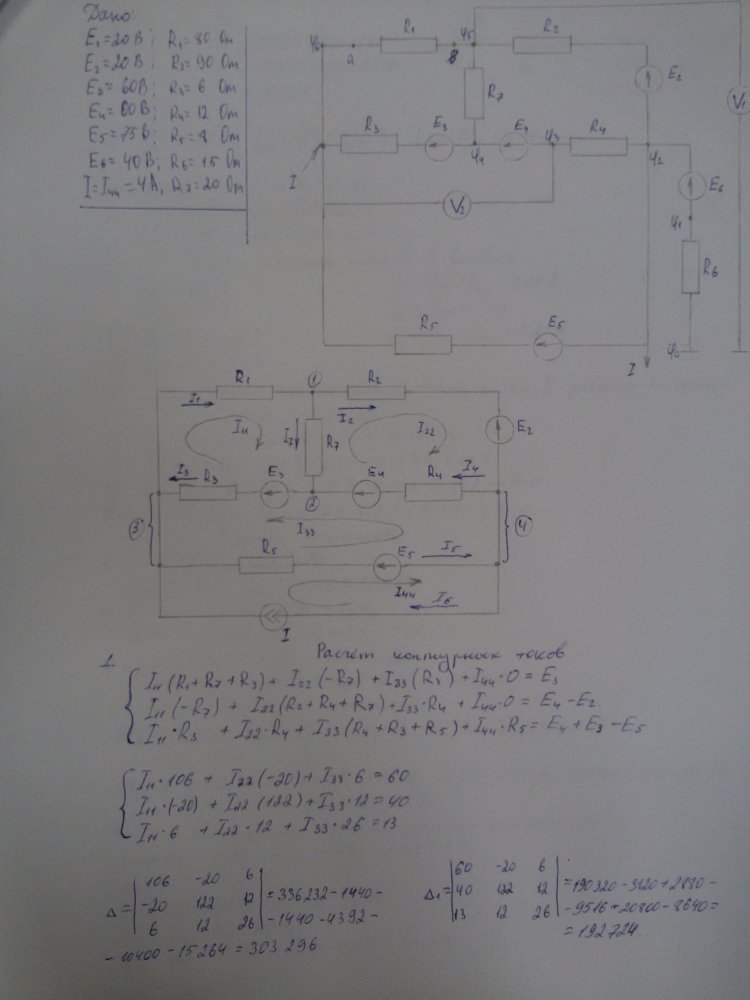 Дано:
E1=20 В; R1=80 Ом
E2=20 В; R2=90 Ом
E3=60 В; R3=6 Ом
R4=12 Ом
E5=75 В; R5=8 Ом
E6=40 В; R6=15 Ом
I=I44=4 А, R7=20 Ом
φ6 a R1 в φ5 R2
E2 V1
R7
R3 E3 φ4 E4 φ3 R4 φ2
I V2 E6
φ1
R6
R5 E5
I φ0
R1 1 R2
I1 I2
I11 I7 R7 I22 E2
I3 R3 E3 E4 R4 I4
2
3 I33 4
R5 E5 I5
I44 I6
I
1. Расчёт контурных токов
I11(R1+R7+R3)+I22(-R7)+I33(R3)+I44·0=E3
I11(-R7)+I22(R2+R4+R7)+I33·R4+I44·0=E4-E2.
I11·R3+I22·R4+I33(R4+R3+R5)+I44·R5=E4+E3-E5
I11·106+I22(-20)+I33·6=60
I11·(-20)+I22(122)+I33·12=40
I11·6+I22·12+I33·26=13
106 -20 6
Δ= -20 122 12 =336232-1440-
6 12 26 -1440-4392-
-10400-15264=303296
60 -20 6
Δ1= 40 122 12 =190320-3120+2880-
13 12 26 -9516+20800-8640=
=192724.